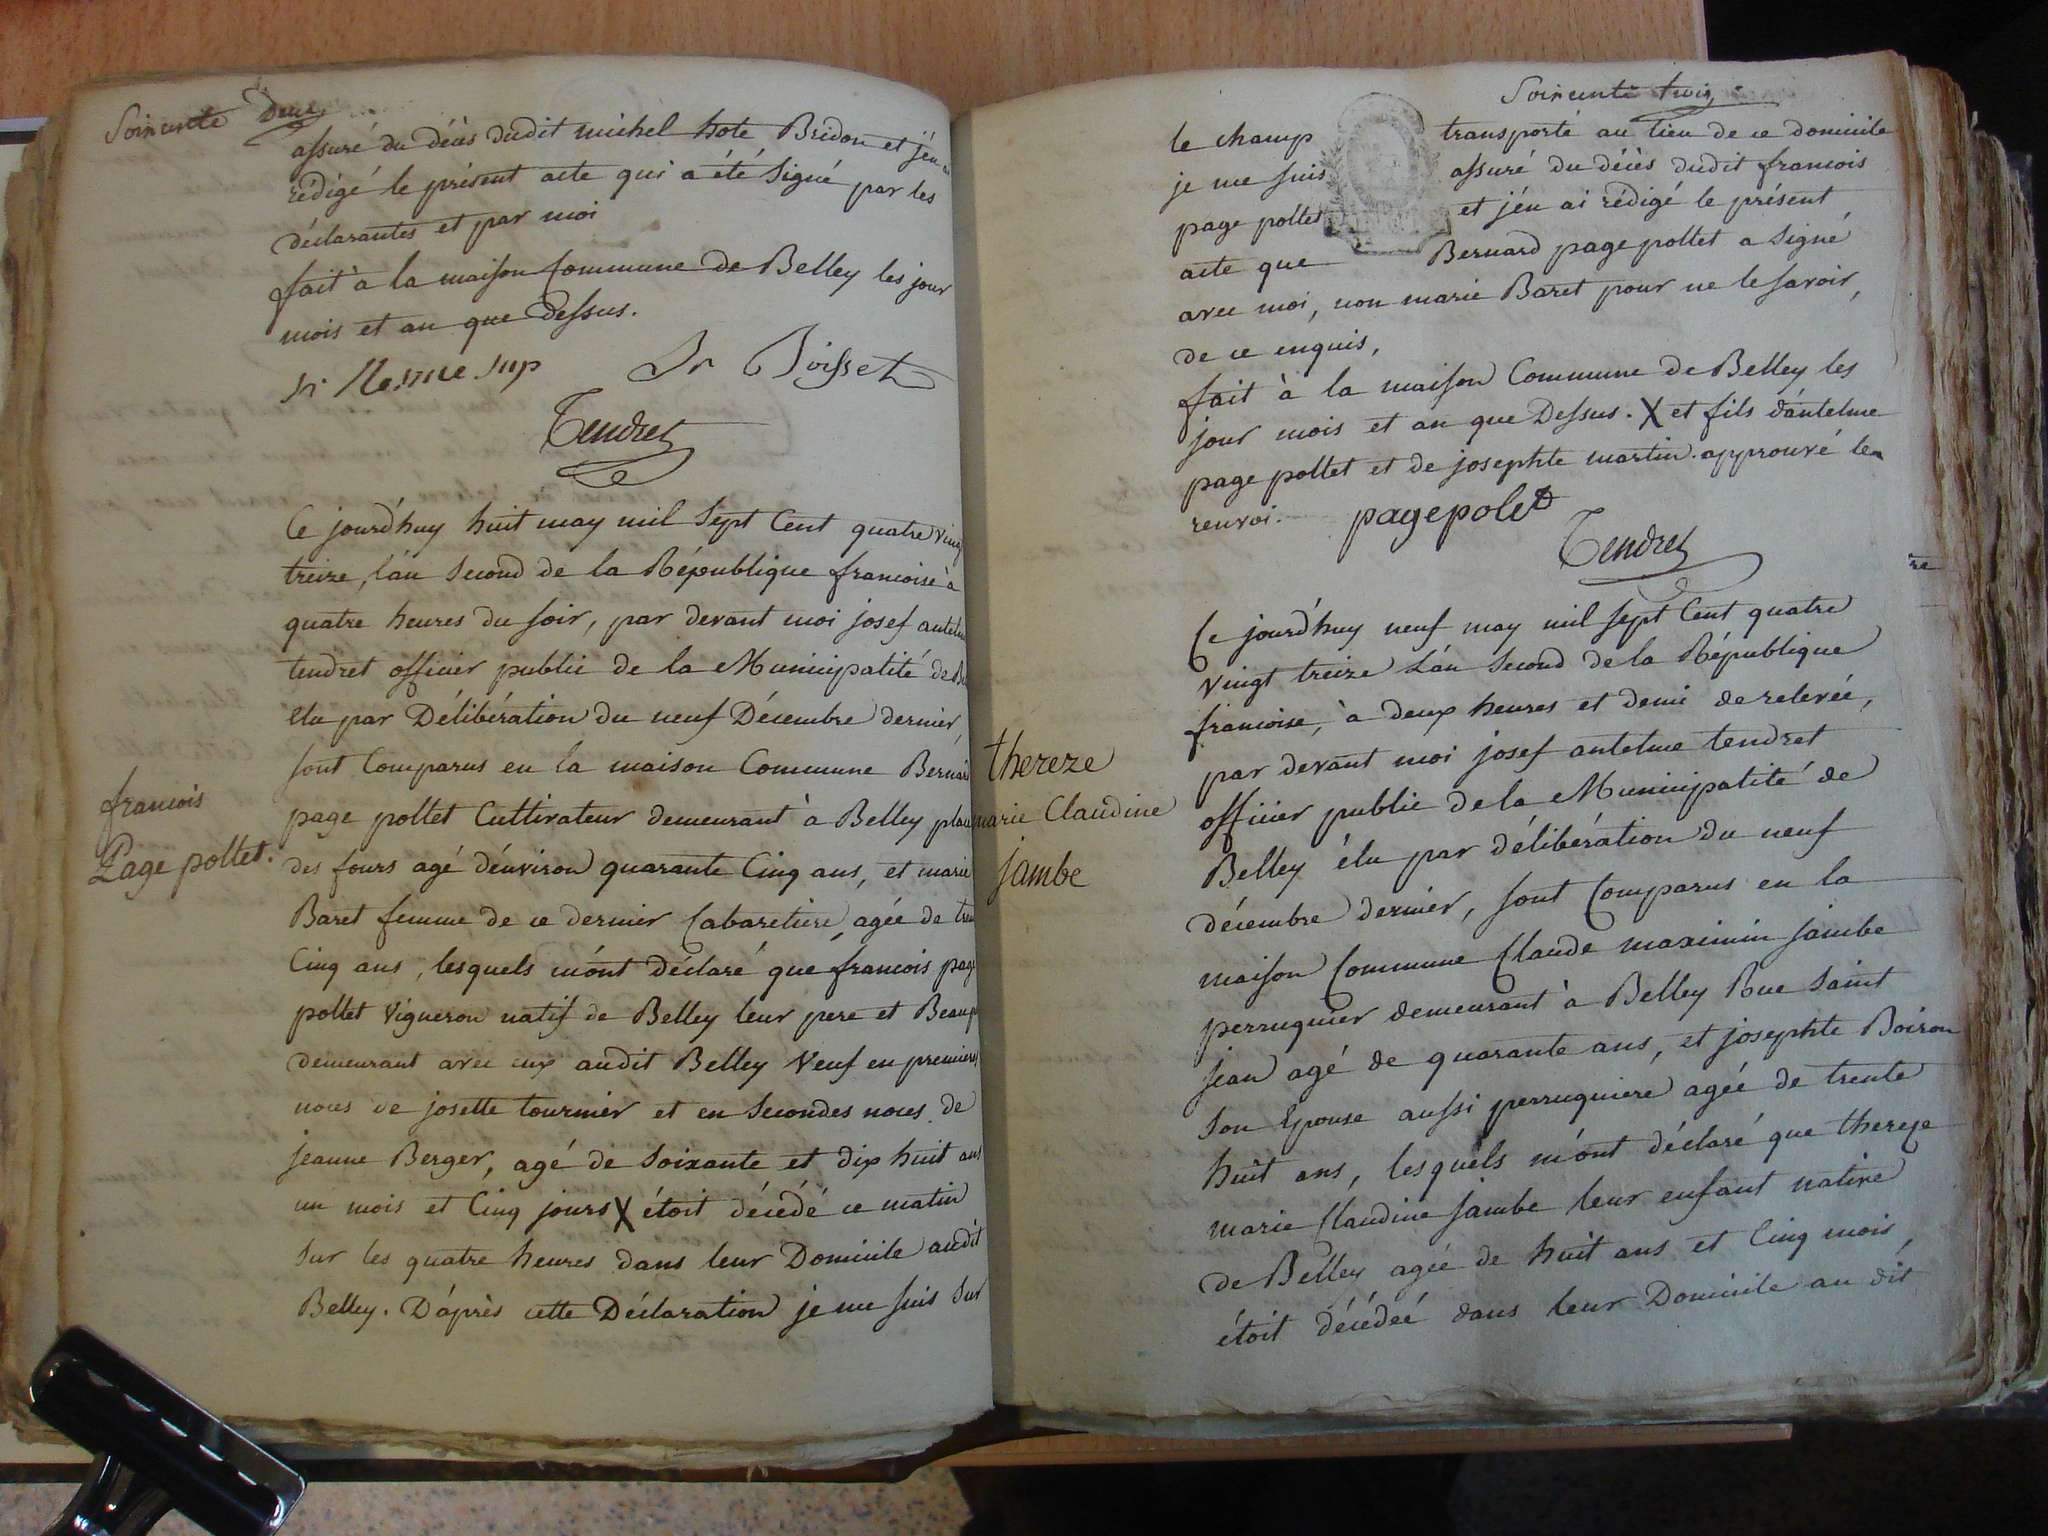 Soixante Deux
assuré du décès dudit michel hote Bridon et j'en ai
rédigé le présent acte qui a été signé par les
déclarantes et par moi
fait à la maison Commune de Belley les jour
mois et an que Dessus.
Sr Nesme sup Sr Boisset
Tendret
Ce jourd'huy huit may mil sept Cent quatre vingt
treize, l'an second de la République francoise à
quatre heures du soir, par devant moi josef antelme
tendret officier public de la Municipalité de Be
élu par Délibération du neuf Décembre dernier,
sont Comparus en la maison Commune Bernard
page pollet Cultivateur demeurant à Belley place
des fours agé d'environ quarante Cinq ans, et marie
Baret femme de ce dernier Cabaretiere, agée de trente
Cinq ans, lesquels m'ont déclaré que francois page
pollet vigneron natif de Belley leur pere et Beaup
demeurant avec eux audit Belley Veuf en premieres
noces de josette tournier et en secondes noces de
jeanne Berger, agé de soixante et dix huit ans
un mois et Cinq jours X étoit décédé ce matin
sur les quatre heures dans leur Domicile audit
Belley. D'après cette Déclaration je me suis sur
francois
Page pollet.
Soixante trois
le champ transporté au lieu de ce domicile
je me suis assuré du décès dudit francois
page pollet et j'en ai rédigé le présent
acte que Bernard page pollet a signé
avec moi, non marie Baret pour ne le savoir,
de ce enquis,
fait à la maison Commune de Belley les
jour mois et an que Dessus. X et fils d'antelme
page pollet et de josephte martin. approuvé le
renvoi. pagepolet
Tendret
Ce jourd'huy neuf may mil sept Cent quatre
vingt treize L'an second de la République
francoise, à deux heures et demi de relevée,
par devant moi josef antelme tendret
officier public de la Municipalité de
Belley élu par délibération du neuf
décembre dernier, sont Comparus en la
maison Commune Claude maximin jambe
perruquier demeurant à Belley Rue saint
jean agé de quarante ans, et josephte Boiron
son Epouse aussi perruquiere agée de trente
huit ans, lesquels m'ont déclaré que thereze
marie Claudine jambe leur enfant native
de Belley agée de huit ans et Cinq mois,
étoit décédeé dans leur Domicile au dit
thereze
marie Claudine
jambe
re